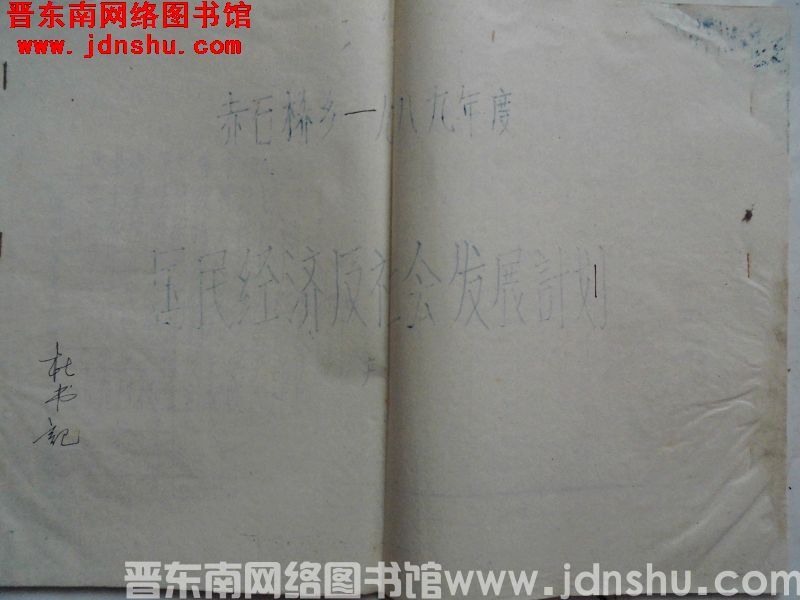 晋东南网络图书馆
www.jdnshu.com
赤石桥乡一九八九年度
国民经济及社会发展計划
杜书記
晋东南网络图书馆www.jdnshu.com